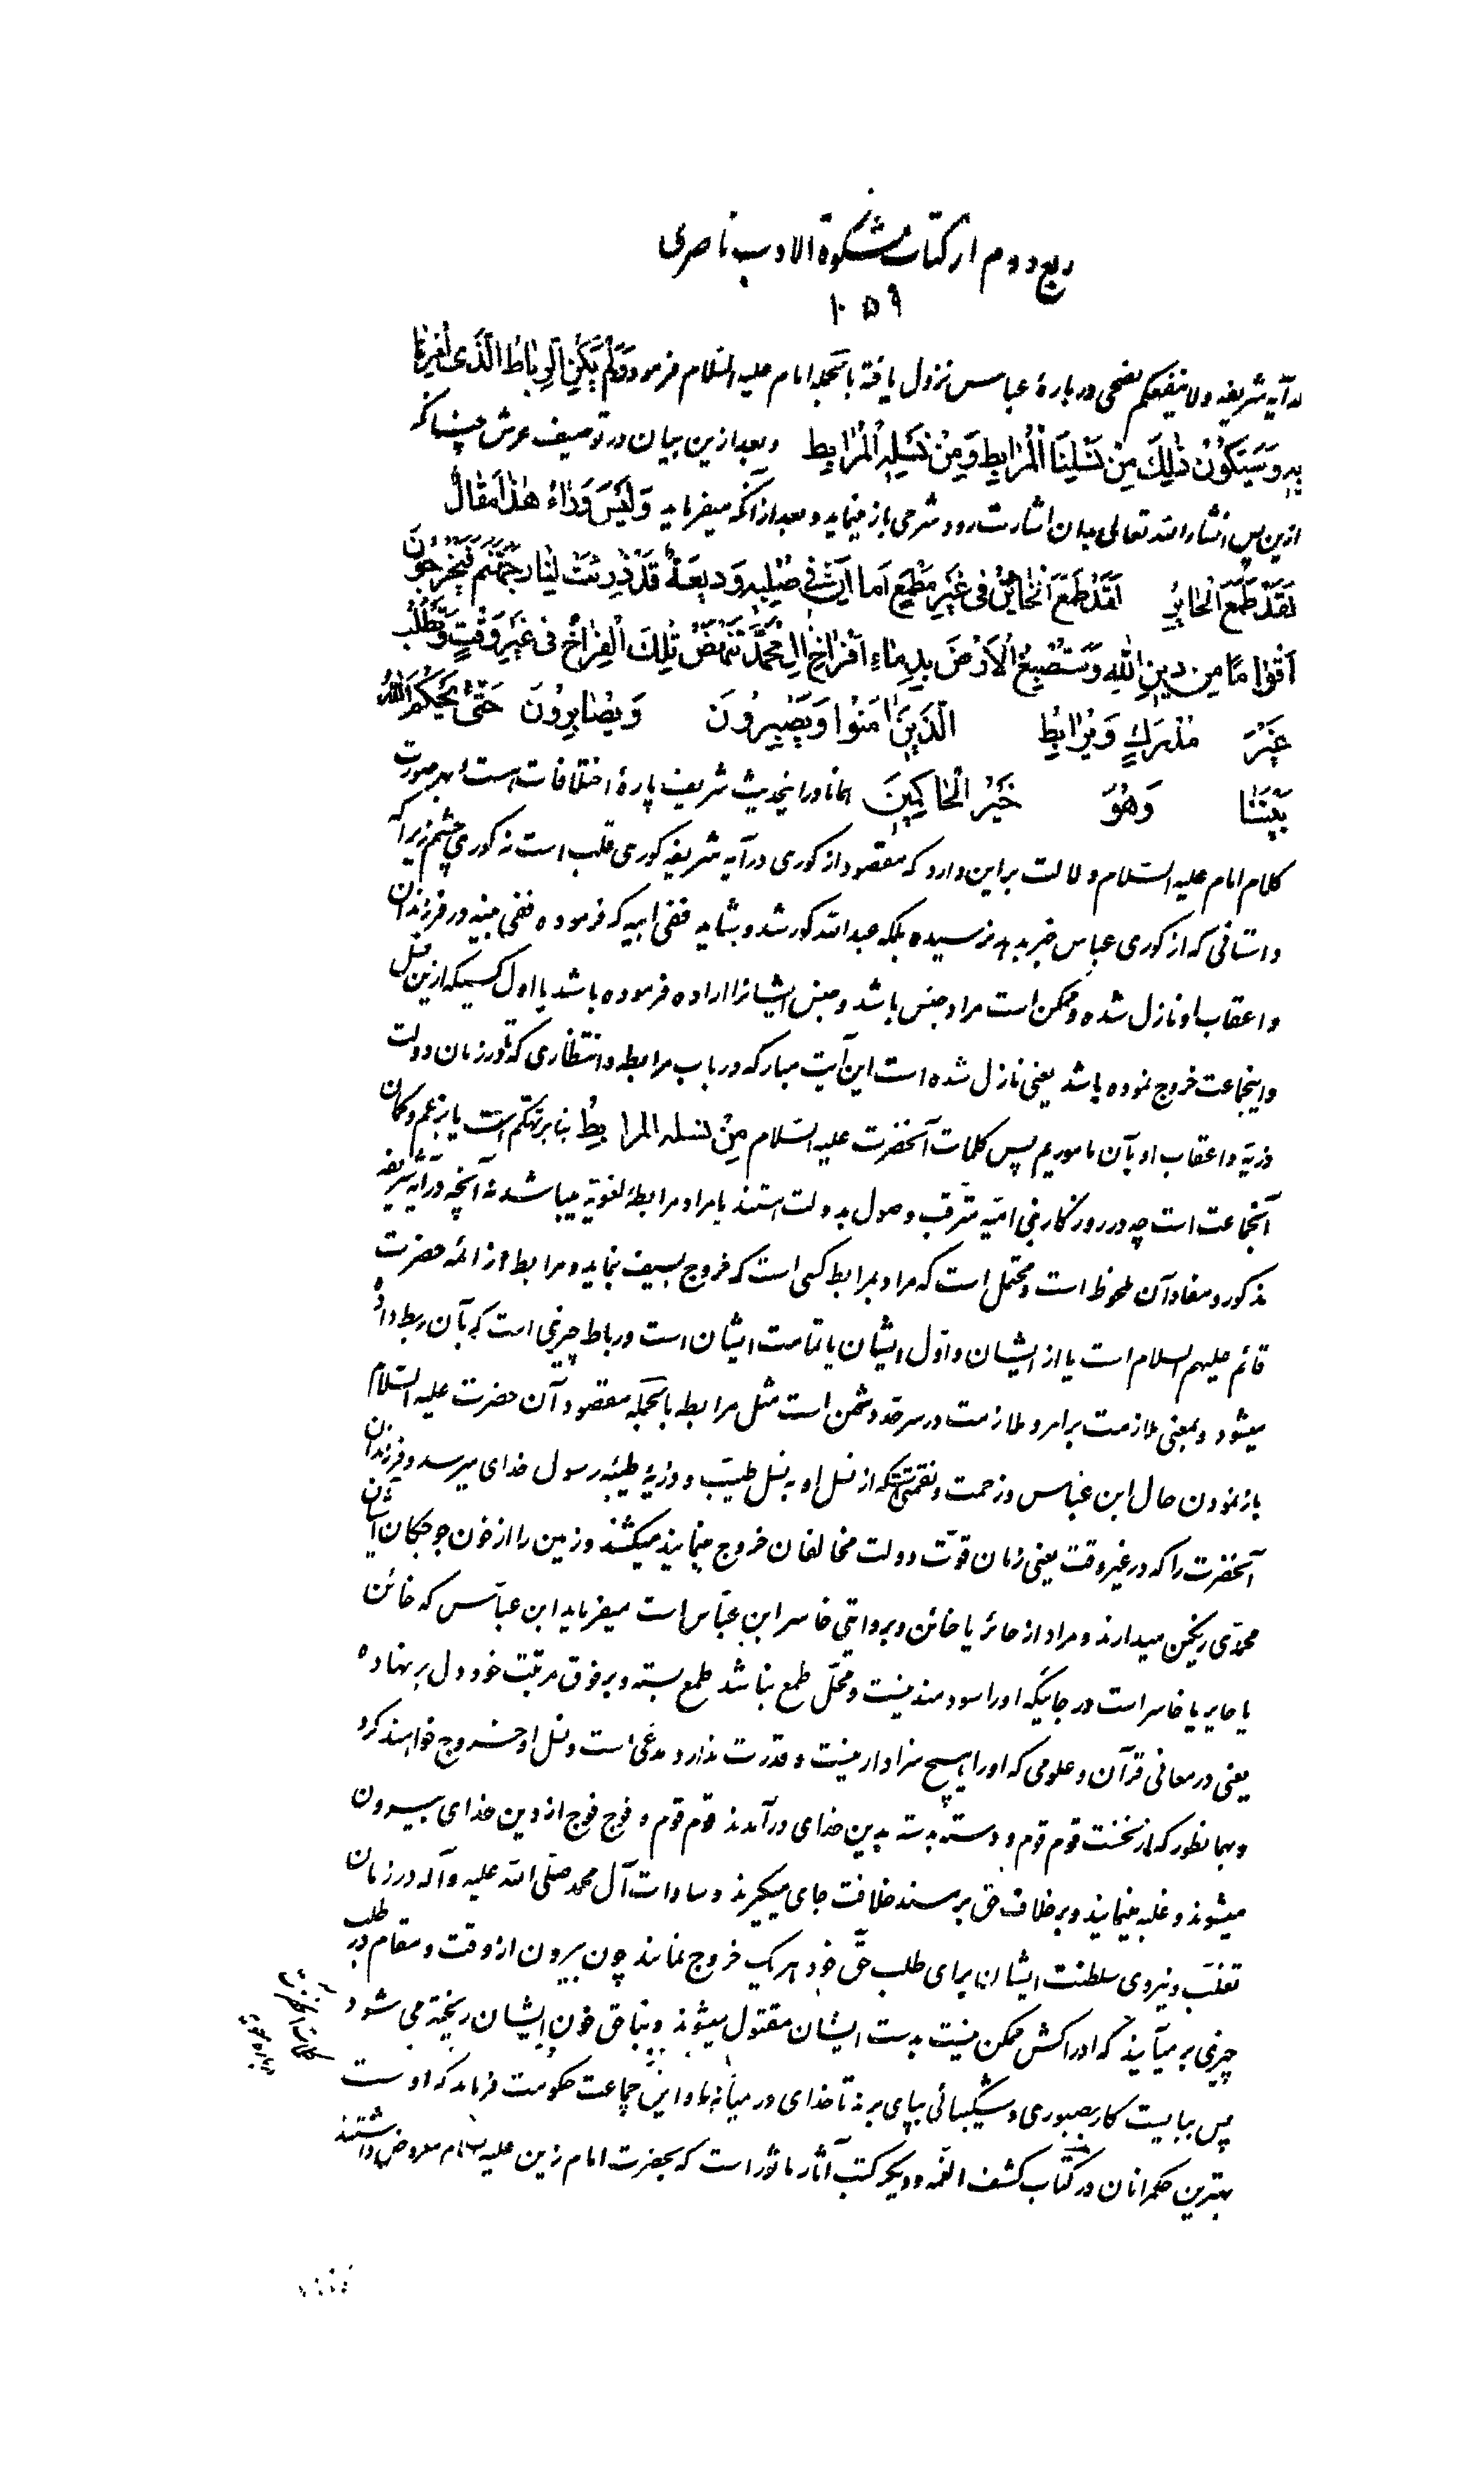 ربع دوم از کتاب مشکوة الادب ناصری
۱۰۵۹
که آیه شریفه ولا ینفعکم نصحی درباره عباس نزول یافته بالجمله امام علیه السلام فرمود وَلَمْ یَکُنِ الرِّباطُ الَّذی اُمِرْنا
بِهِ وَسَیَکُونُ ذٰلِکَ مِنْ نَسْلِنَا الْمُرابِطِ وَمِنْ نَسْلِهِ الْمُرابِط و بعد ازین بیان در توصیف عرش چنانکه
ازین پس انشاء الله تعالی بدان اشارت رود شرحی باز مینماید و بعد از آنکه میفرماید وَلَیْسَ وَراءَ هٰذا مَقالٌ
لَقَدْ طَمَعَ الْحائِرُ لَقَدْ طَمَعَ الْخائِنُ فی غَیْرِ مَطْمَعٍ اَما اِنَّ فی صُلْبِهِ وَدیعَةً قَدْ ذُرِئَتْ لِنارِ جَهَنَّمَ فَیُخْرِجُونَ
اَقْواماً مِنْ دینِ اللهِ وَسَتُصْبَغُ الْاَرْضُ بِدِماءِ اَفْراخِ آلِ مُحَمَّدٍ تَنْهَضُ تِلْکَ الْفِراخُ فی غَیْرِ وَقْتٍ وَتَطْلُبُ
غَیْرَ مُدْرَکٍ وَیُرابِطُ الَّذینَ اٰمَنُوا وَیَصْبِرُونَ وَیُصابِرُونَ حَتّی یَحْکُمَ اللهُ
بَیْنَنا وَهُوَ خَیْرُ الْحاکِمینَ همانا در اینحدیث شریف پاره اختلافات است بهر صورت
کلام امام علیه السلام دلالت بر این دارد که مقصود از کوری در آیه شریفه کوری قلب است نه کوری چشم زیرا که
داستانی که از کوری عباس خبر بدهد نرسیده بلکه عبدالله کور شد و شاید ففی ابیه که فرموده ففی بنیه در فرزندان
و اعقاب او نازل شده و ممکن است مراد جنس باشد و جنس ایشانرا اراده فرموده باشد یا اول کسیکه ازین نسل
و اینجماعت خروج نموده باشد یعنی نازل شده است این آیت مبارکه در باب مرابطه و انتظاری که ما در زمان دولت
ذریه و اعقاب او بآن ماموریم پس کلمات آنحضرت علیه السلام مِنْ نسله المرابِطُ بنا بر تهکم است یا بزعم و گمان
آنجماعت است چه در روزگار بنی امیه مترقب وصول بدولت هستند یا مراد مرابطه لغویه میباشد نه آنچه در آیه شریفه
مذکور و مفاد آن ملحوظ است و محتمل است که مراد بمرابط کسی است که خروج بسیف نماید و مرابط از ائمه حضرت
قائم علیهم السلام است یا از ایشان و اول ایشان یا تمامت ایشان است و رباط چیزی است که بآن ربط داده
میشود و بمعنی ملازمت بر امر و ملازمت در سرحد دشمن است مثل مرابطه بالجمله مقصود آن حضرت علیه السلام
باز نمودن حال ابن عباس و زحمت و نقمتی است که از نسل او به نسل طیب و ذریه طیبه رسول خدای میرسد و فرزندان
آنحضرت را که در غیر وقت یعنی زمان قوت دولت مخالفان خروج مینمایند میکشند و زمین را از خون جوجگان آشیان
محمدی رنگین میدارند و مراد از حائر یا خائن و بروایتی خاسر ابن عباس است میفرماید ابن عباس که خائن
یا حایر یا خاسر است در جائیکه او را سودمند نیست و محل طمع نباشد طمع بسته و بر فوق مرتبت خود دل بر نهاده
یعنی در معانی قرآن و علومی که او را هیچ سزاوار نیست و قدرت ندارد مدعی است و نسل او خروج خواهند کرد
و بهمانطور که از نخست قوم قوم و دسته بدسته بدین خدای درآمدند قوم قوم و فوج فوج از دین خدای بیرون
میشوند و غلبه مینمایند و بر خلاف حق بر مسند خلافت جای میگیرند و سادات آل محمد صلی الله علیه وآله در زمان
تغلب و نیروی سلطنت ایشان برای طلب حق خود هر یک خروج نمایند چون بیرون از وقت و مقام در طلب
چیزی بر میآیند که ادراکش ممکن نیست بدست ایشان مقتول میشوند و بناحق خون ایشان ریخته می شود
پس ببایست کار بصبوری و شکیبائی بپای برند تا خدای در میانه ما و این جماعت حکومت فرماید که اوست
بهترین حکمرانان در کتاب کشف الغمه و دیگر کتب آثار ماثور است که بحضرت امام زین علیه السلام معروض داشتند